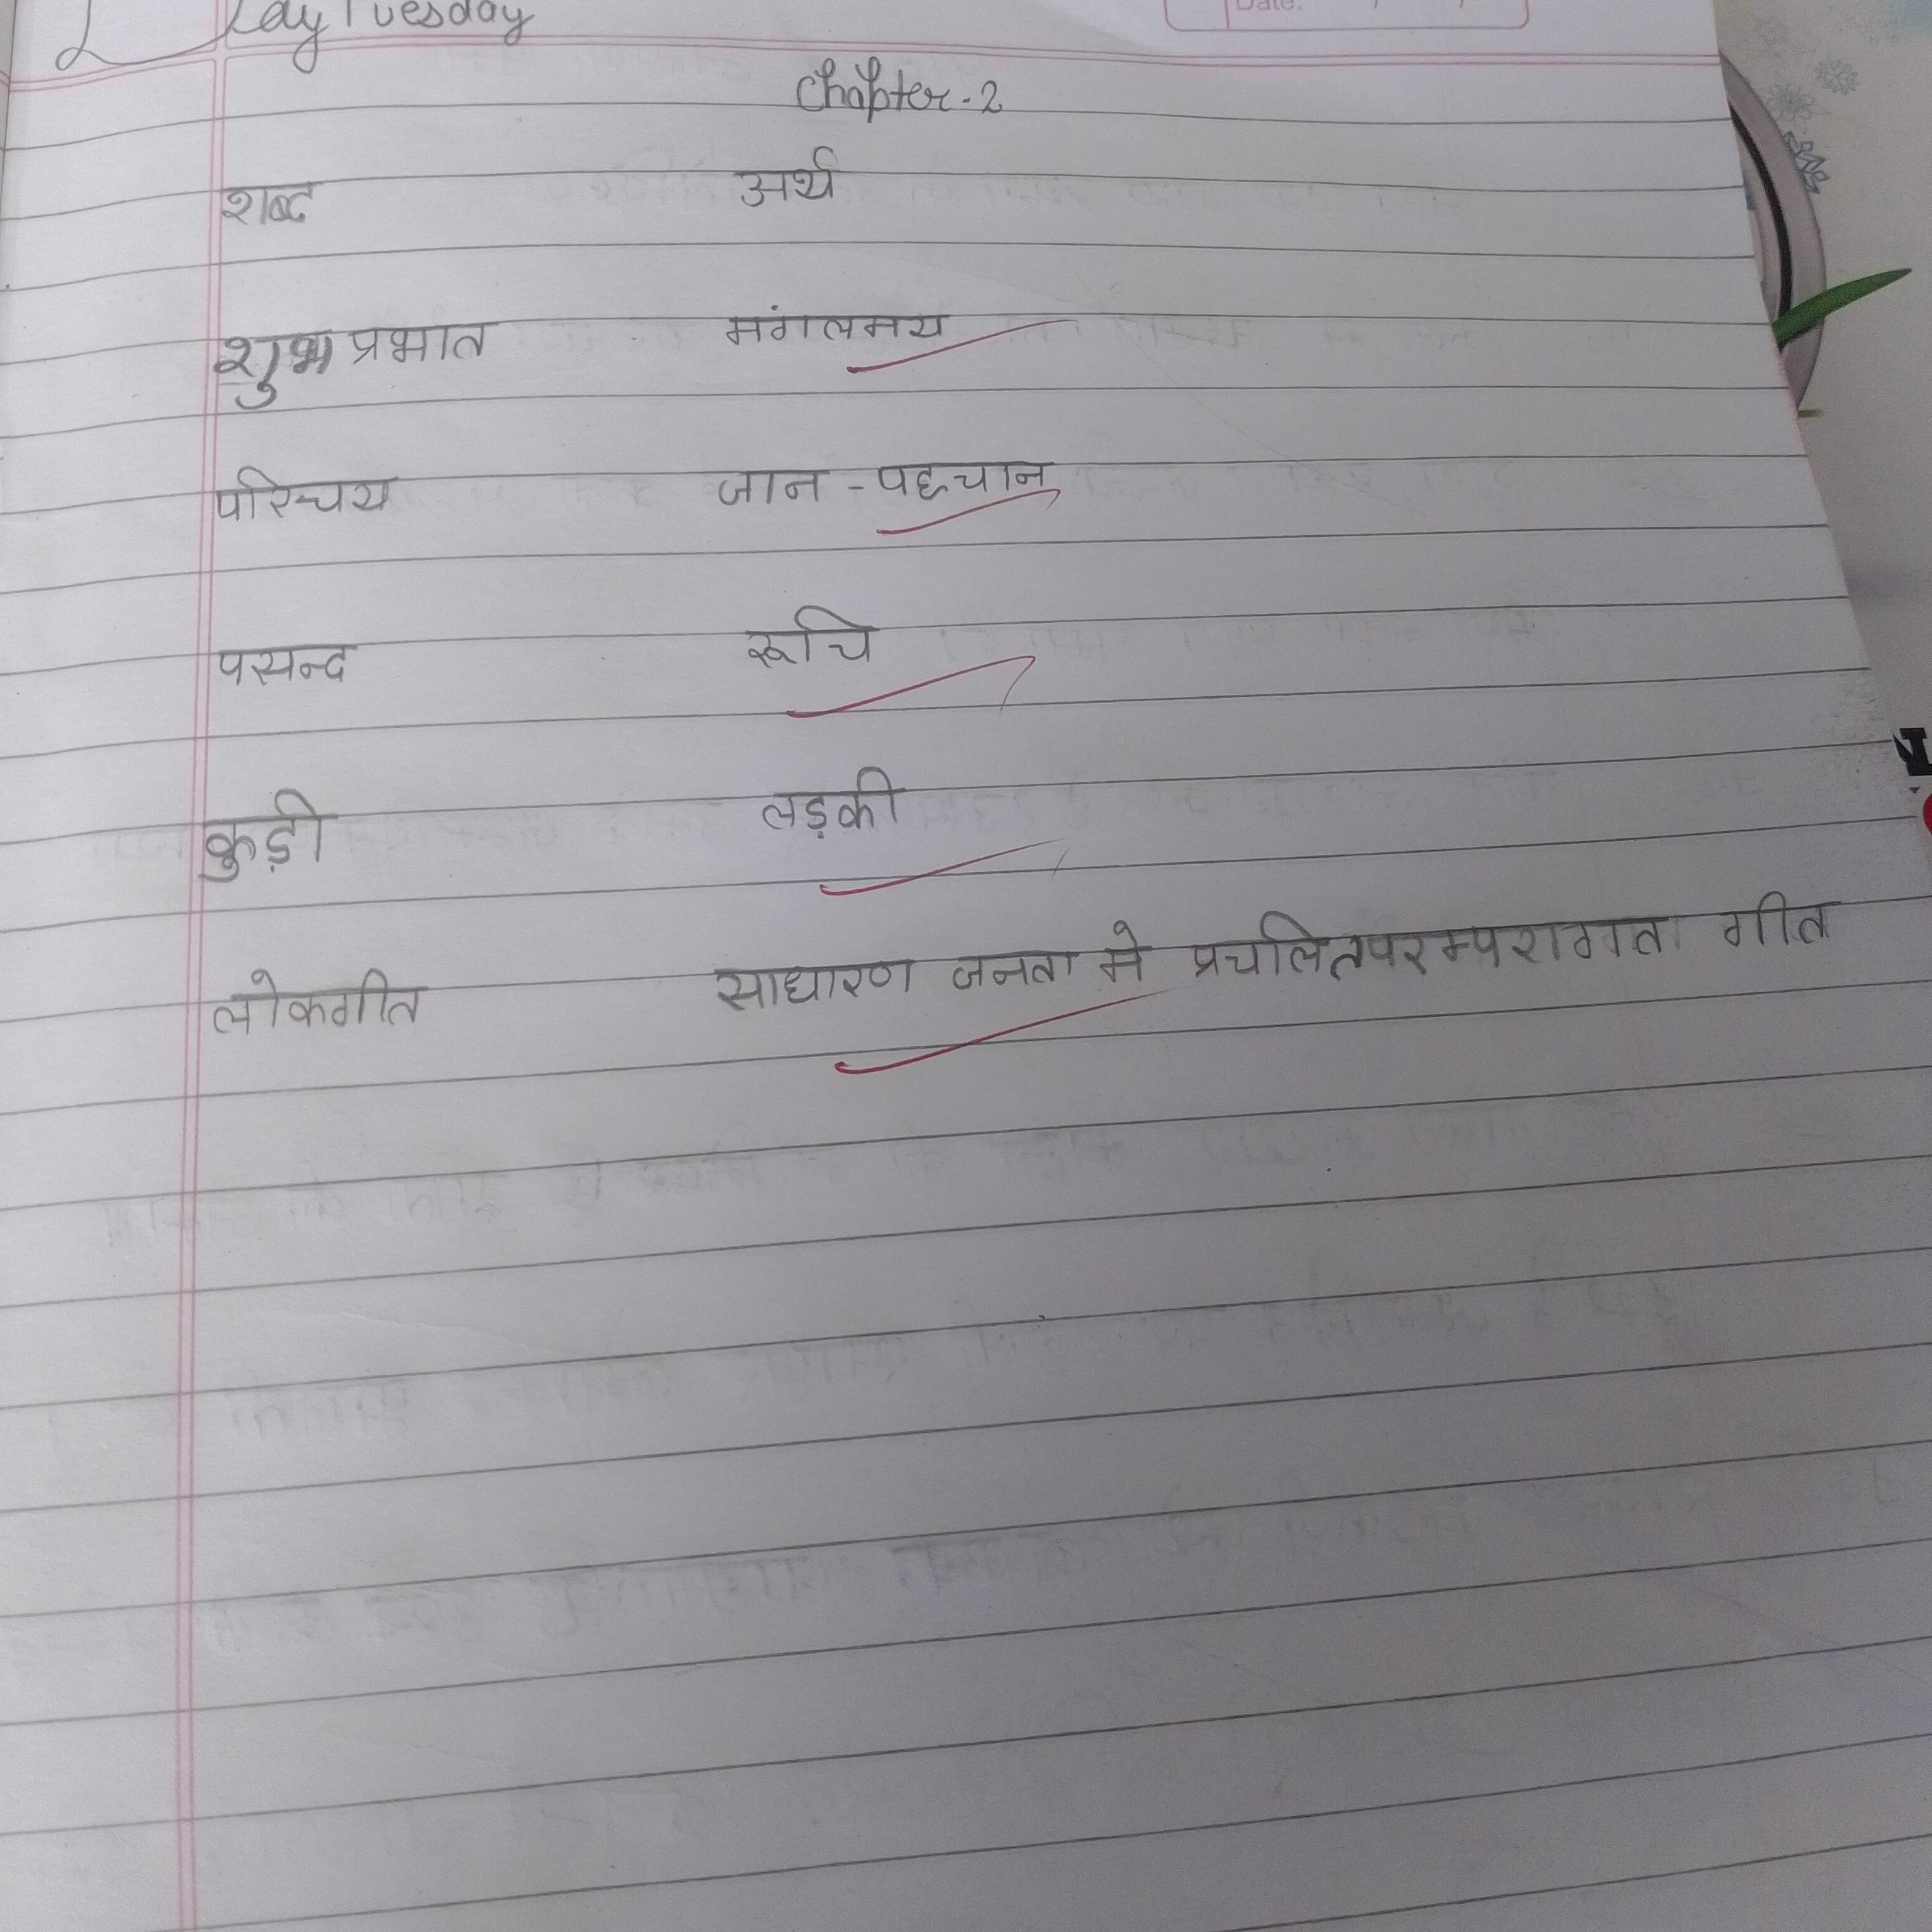 Day Tuesday
Date:
Chapter-2
शब्द अर्थ
शुभ प्रभात मंगलमय
परिचय जान-पहचान
पसन्द रूचि
कुड़ी लड़की
लोकगीत साधारण जनता मे प्रचलित परम्परागत गीत